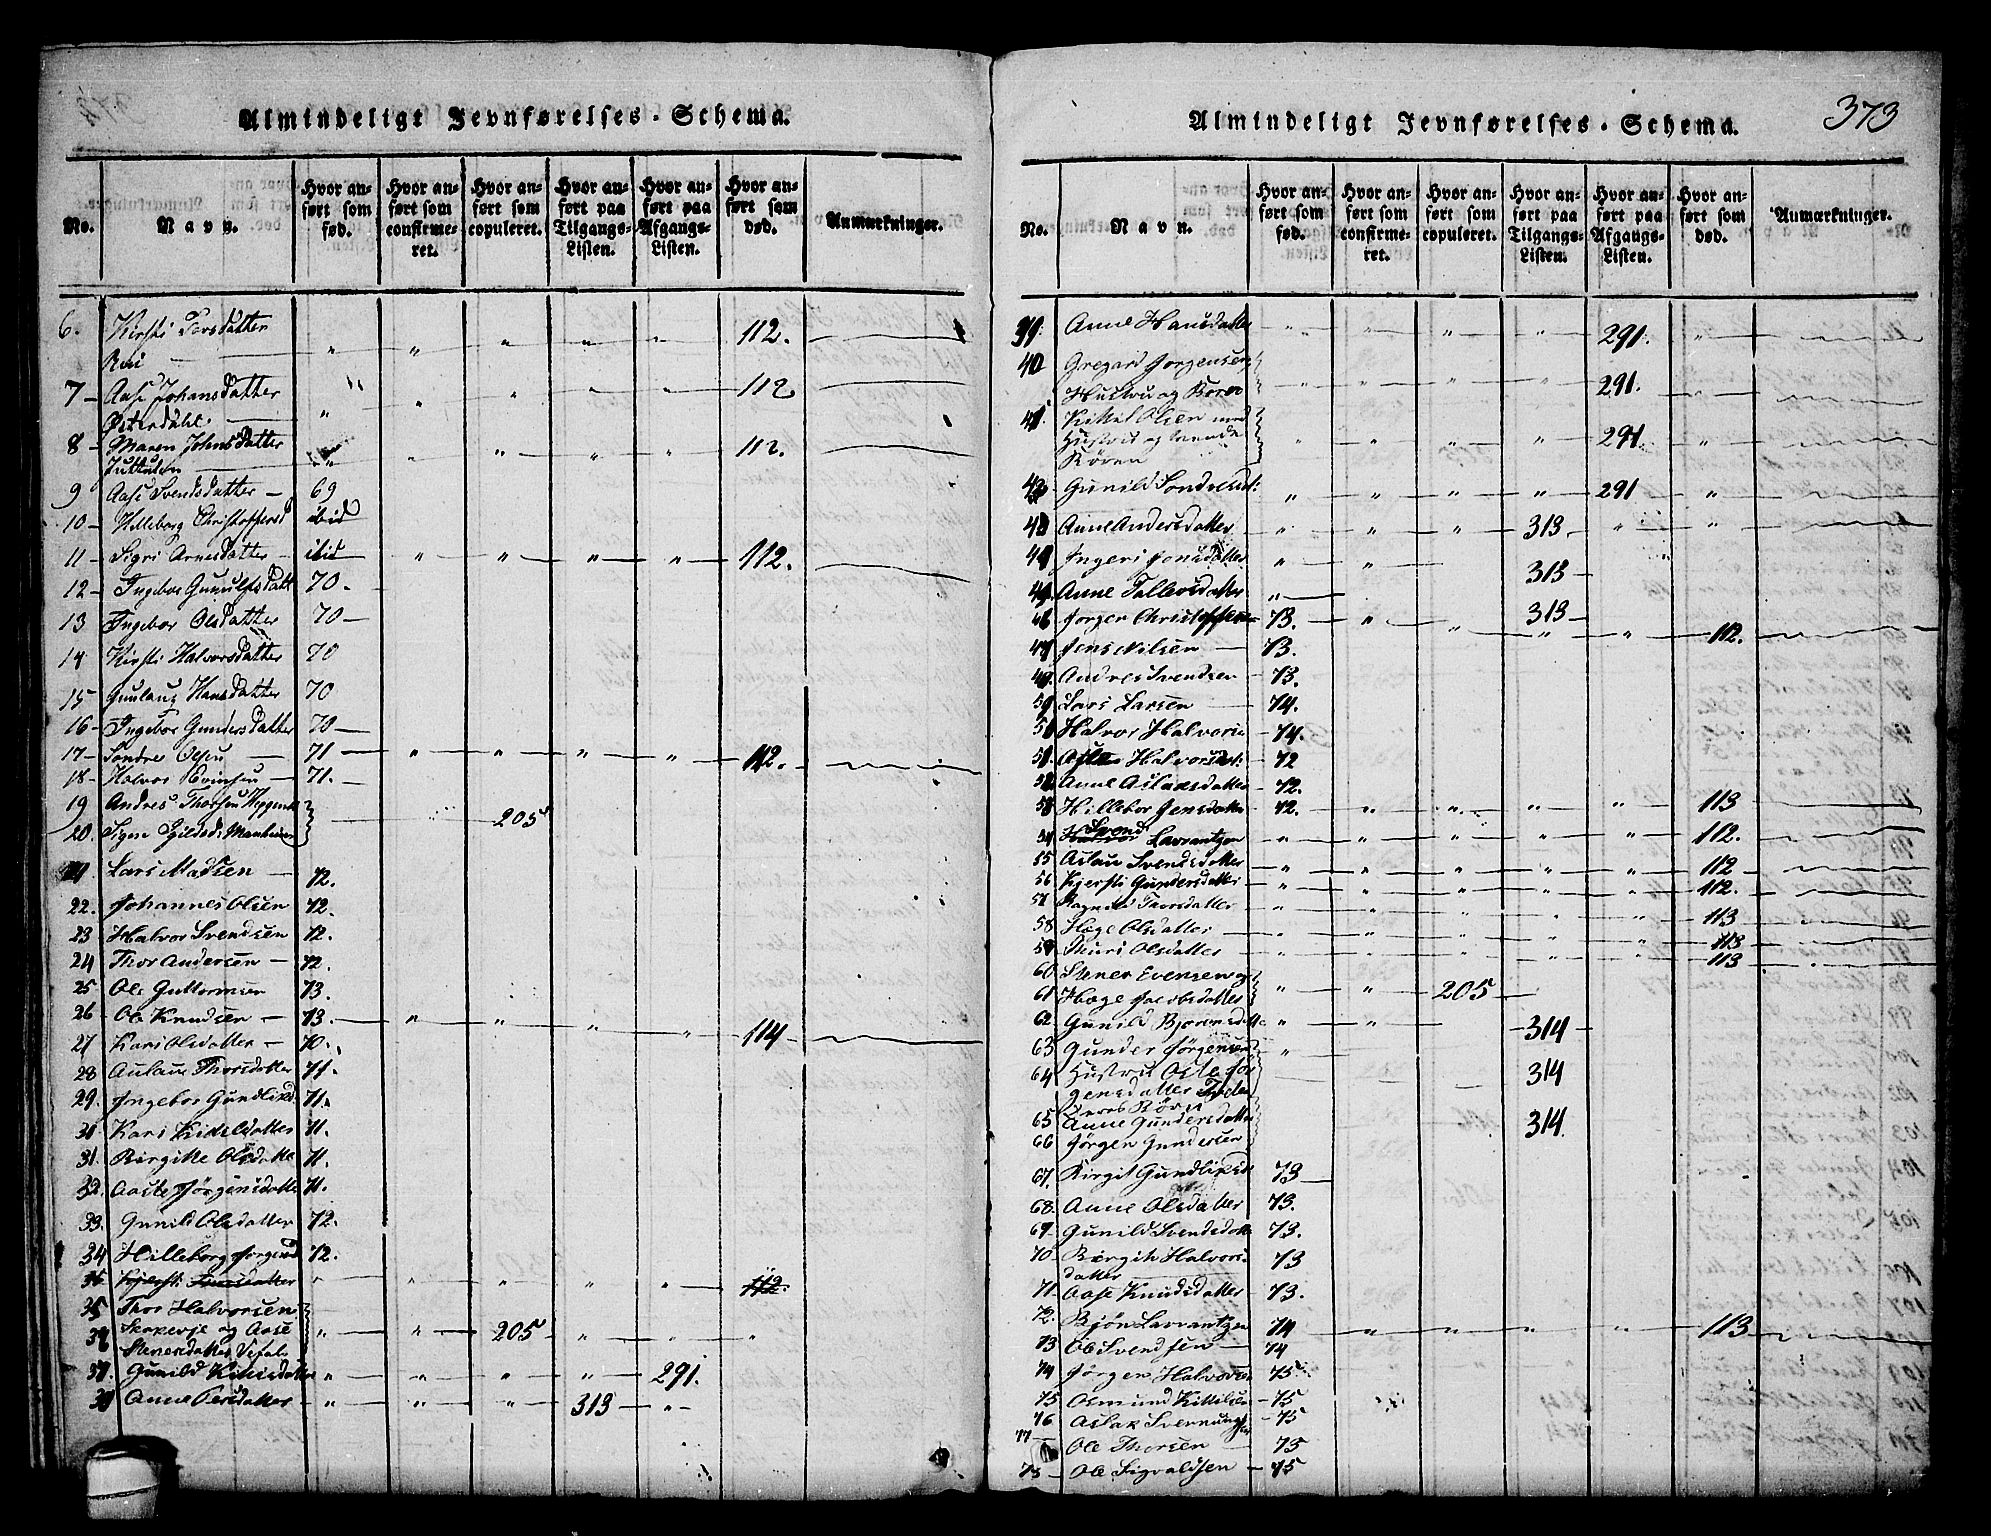 Almindeligt Jevnførelses-Schema.
No.
Navn.
Hvor anført som fød.
Hvor anført som confirmeret.
Hvor anført som copuleret.
Hvor anført paa Tilgangs-Listen.
Hvor anført paa Afgangs-Listen.
Hvor anført som død.
Anmærkninger.
6. Kirsti Torsdatter 112.
7 Aase Johansdatter 112
Østerdahl
8 Maren Johnsdatter 112.
9 Aase Svendsdatter 69
10 Helleborg Christophersd ibid
11 Sigri Arnesdatter ibid 112.
12 Ingebor Gunulfsdatt 70.
13 Ingebor Olsdatter 70
14 Kirsti Halvorsdatter 70
15 Gunlaug Hansdatter 70
16 Ingebor Gundersdatter 70
17 Sondre Olsen 71 112.
18 Halvor Evinsen 71.
19 Andres Thorsen 205
20. Signe
21 Lars Madsen 72.
22. Johannes Olsen 72.
23 Halvor Svendsen 72.
24 Thor Andersen 72.
25 Ole Guttormsen 73.
26 Ole Knudsen 73. 114
27 Kari Olsdatter 70.
28 Aulaue Thorsdatter 71.
29. Ingebor Gundliksd 71.
30 Kari Kidelsdatter 71.
31. Birgitte Olsdatte 71.
32. Aaste Jørgensdatte 71.
33. Gunild Olsdatter 72.
34 Hilleborg Jørgensd 72.
Kjersti 112.
35 Thor Halvorsen
og Aase 205
Stenersdatter
37. Gunild Kittilsdatter 291.
38 Anne Persdatter 313
Almindeligt Jevnførelses-Schema.
373
No.
Navn.
Hvor anført som fød.
Hvor anført som confirmeret.
Hvor anført som copuleret.
Hvor anført paa Tilgangs-Listen.
Hvor anført paa Afgangs-Listen.
Hvor anført som død.
Anmærkninger.
39. Anne Hansdatter 291.
40 Gregard Jørgensen
Hustru og Børn 291.
41. Kittel Olsen med
Hustru og 291
Børn
42 Gunild Sondresdt: 291
43 Anne Andersdatter 313
44 Ingeri Jonsdatter 313
45 Anne Tallevsdatter 313
46 Jørgen Christophersen 73. 112.
47 Jens Nilsen 73.
Andres Svendsen 73.
Lars Larsen 74.
Halvor Halvorsen 74.
Halvorsdt: 72
Anne Aslaksdatter 72.
53 Hillebor Jensdatter 72. 113
54 Lavrantzen 112.
55 Aslau Svendsdatter 112
56 Kjersti Gundersdatter 112.
57 Ragnild Thorsdatter 113
58 Hæge Olsdatter 113
59 Thuri Olsdatter 113
60 Stener Evensen og
61 Hæge Jacobsdatter 205
62 Gunild 314
63 Gunder Jørgensen
64 Hustru Aste Jørgensdatter 314
65 Anne Gundersdatter 314.
66 Jørgen Gundersen
67. Birgit Gundliksd 73
68. Anne Olsdatter 73.
69 Gunild Svendsdatt 73.
70 Birgith Halvorsdatter 73
71 Aase Knudsdatter 73.
72. Bjøn Lavrantzen 74 113
73 Ole Svendsen 74
74 Jørgen Halvorsen 75
75 Osmund Kittilsen 75
76 Aslak Svennungsen 75
77 Ole Thorsen 75
78 Ole Sigvaldsen 75